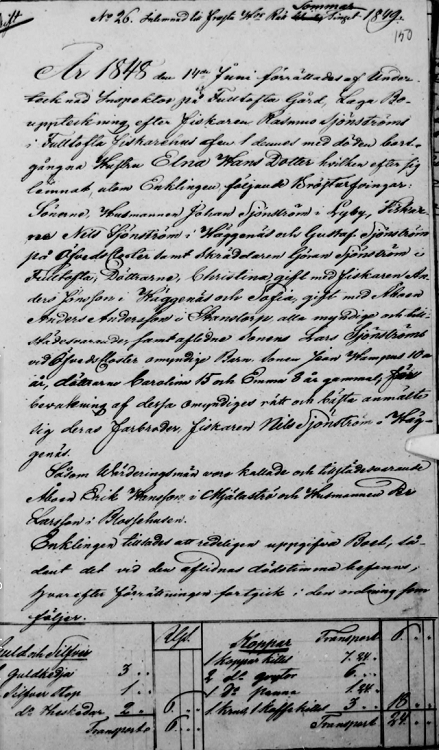 No 26. Inlemnad til Frosta Hds Rätt Sommar Tinget 1849.
150
År 1848 den 14de Juni förrättades af Under-
tecknad Inspektor på Fulltofta Gård, Laga Bo-
uppteckning efter Fiskaren Rasmus Sjönströms
i Fulltofta Fiskarehus afled. dennes med döden bort-
gångna Hustru Elna Hans Dotter hvilken efter sig
lemnat, utom Enklingen följande Bröstarfvingar:
Sönerne, Husmannen Johan Sjönström i Lyby, Fiskar-
ne Nils Sjönström i Häggenäs och Gustaf Sjönström
på Öfvedskloster samt Skräddaren Göran Sjönström i
Fulltofta, Döttrarne, Christina gift med Fiskaren An-
ders Jönsson i Häggenäs och Sofia, gift med Åboen
Anders Andersson i alla myndige och till-
städesvarande, samt aflidne Sonens Lars Sjönströms
vid Öfvedskloster omyndige Barn, Sonen Hampus 10
år, döttrarne Carolina 15 och Emma 3 år gammal, för
bevakning af dessa omyndiges rätt och bästa anmälte
sig deras Farbroder, Fiskaren Nils Sjönström i Häg-
genäs.
Såsom Värderingsmän voro kallade och tillstädesvarande
Åboen Erik Hansson i och Husmannen Per
Larsson i
Enklingen tillsades att redeligen uppgifva Boet, så-
dant det vid den aflidnas dödstimma befanns,
hvarefter Förrättningen fortgick i den ordning som
följer.
Guld och Silfver
Rgd.
Guldkedja 3 . .
Silfver 1 . .
do 2 . . 6
Transport 6
Koppar Transport 6
1 Kopparkittel 7.24
2 do grytor 6 . .
1 do panna 1.24
1 Kaffekittel 3 . . 18
Transport 24